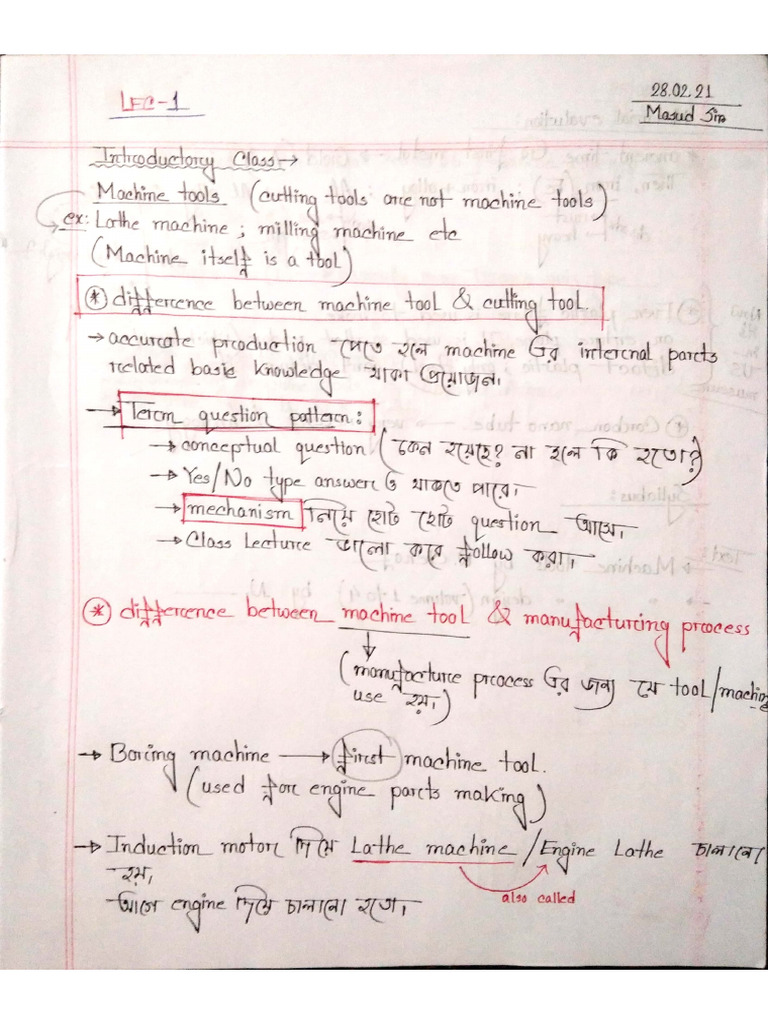 28.02.21
LEC-1
Masud Sir
Introductory Class→
Machine tools (cutting tools are not machine tools)
ex: Lathe machine ; milling machine etc
(Machine itself is a tool)
* difference between machine tool & cutting tool.
→ accurate production পেতে হলে machine এর internal parts
related basic knowledge থাকা প্রয়োজন।
→ Term question pattern:
→ conceptual question (কেন হয়েছে? না হলে কি হতো?)
→ Yes/No type answer ও থাকতে পারে।
→ mechanism নিয়ে ছোট ছোট question আসে।
→ Class Lecture ভালো করে follow করা।
* difference between machine tool & manufacturing process
(manufacture process এর জন্য যে tool/machine
use হয়।)
→ Boring machine → first machine tool.
(used for engine parts making)
→ Induction motor দিয়ে Lathe machine / Engine Lathe চালানো
হয়।
also called
আগে engine দিয়ে চালানো হতো।